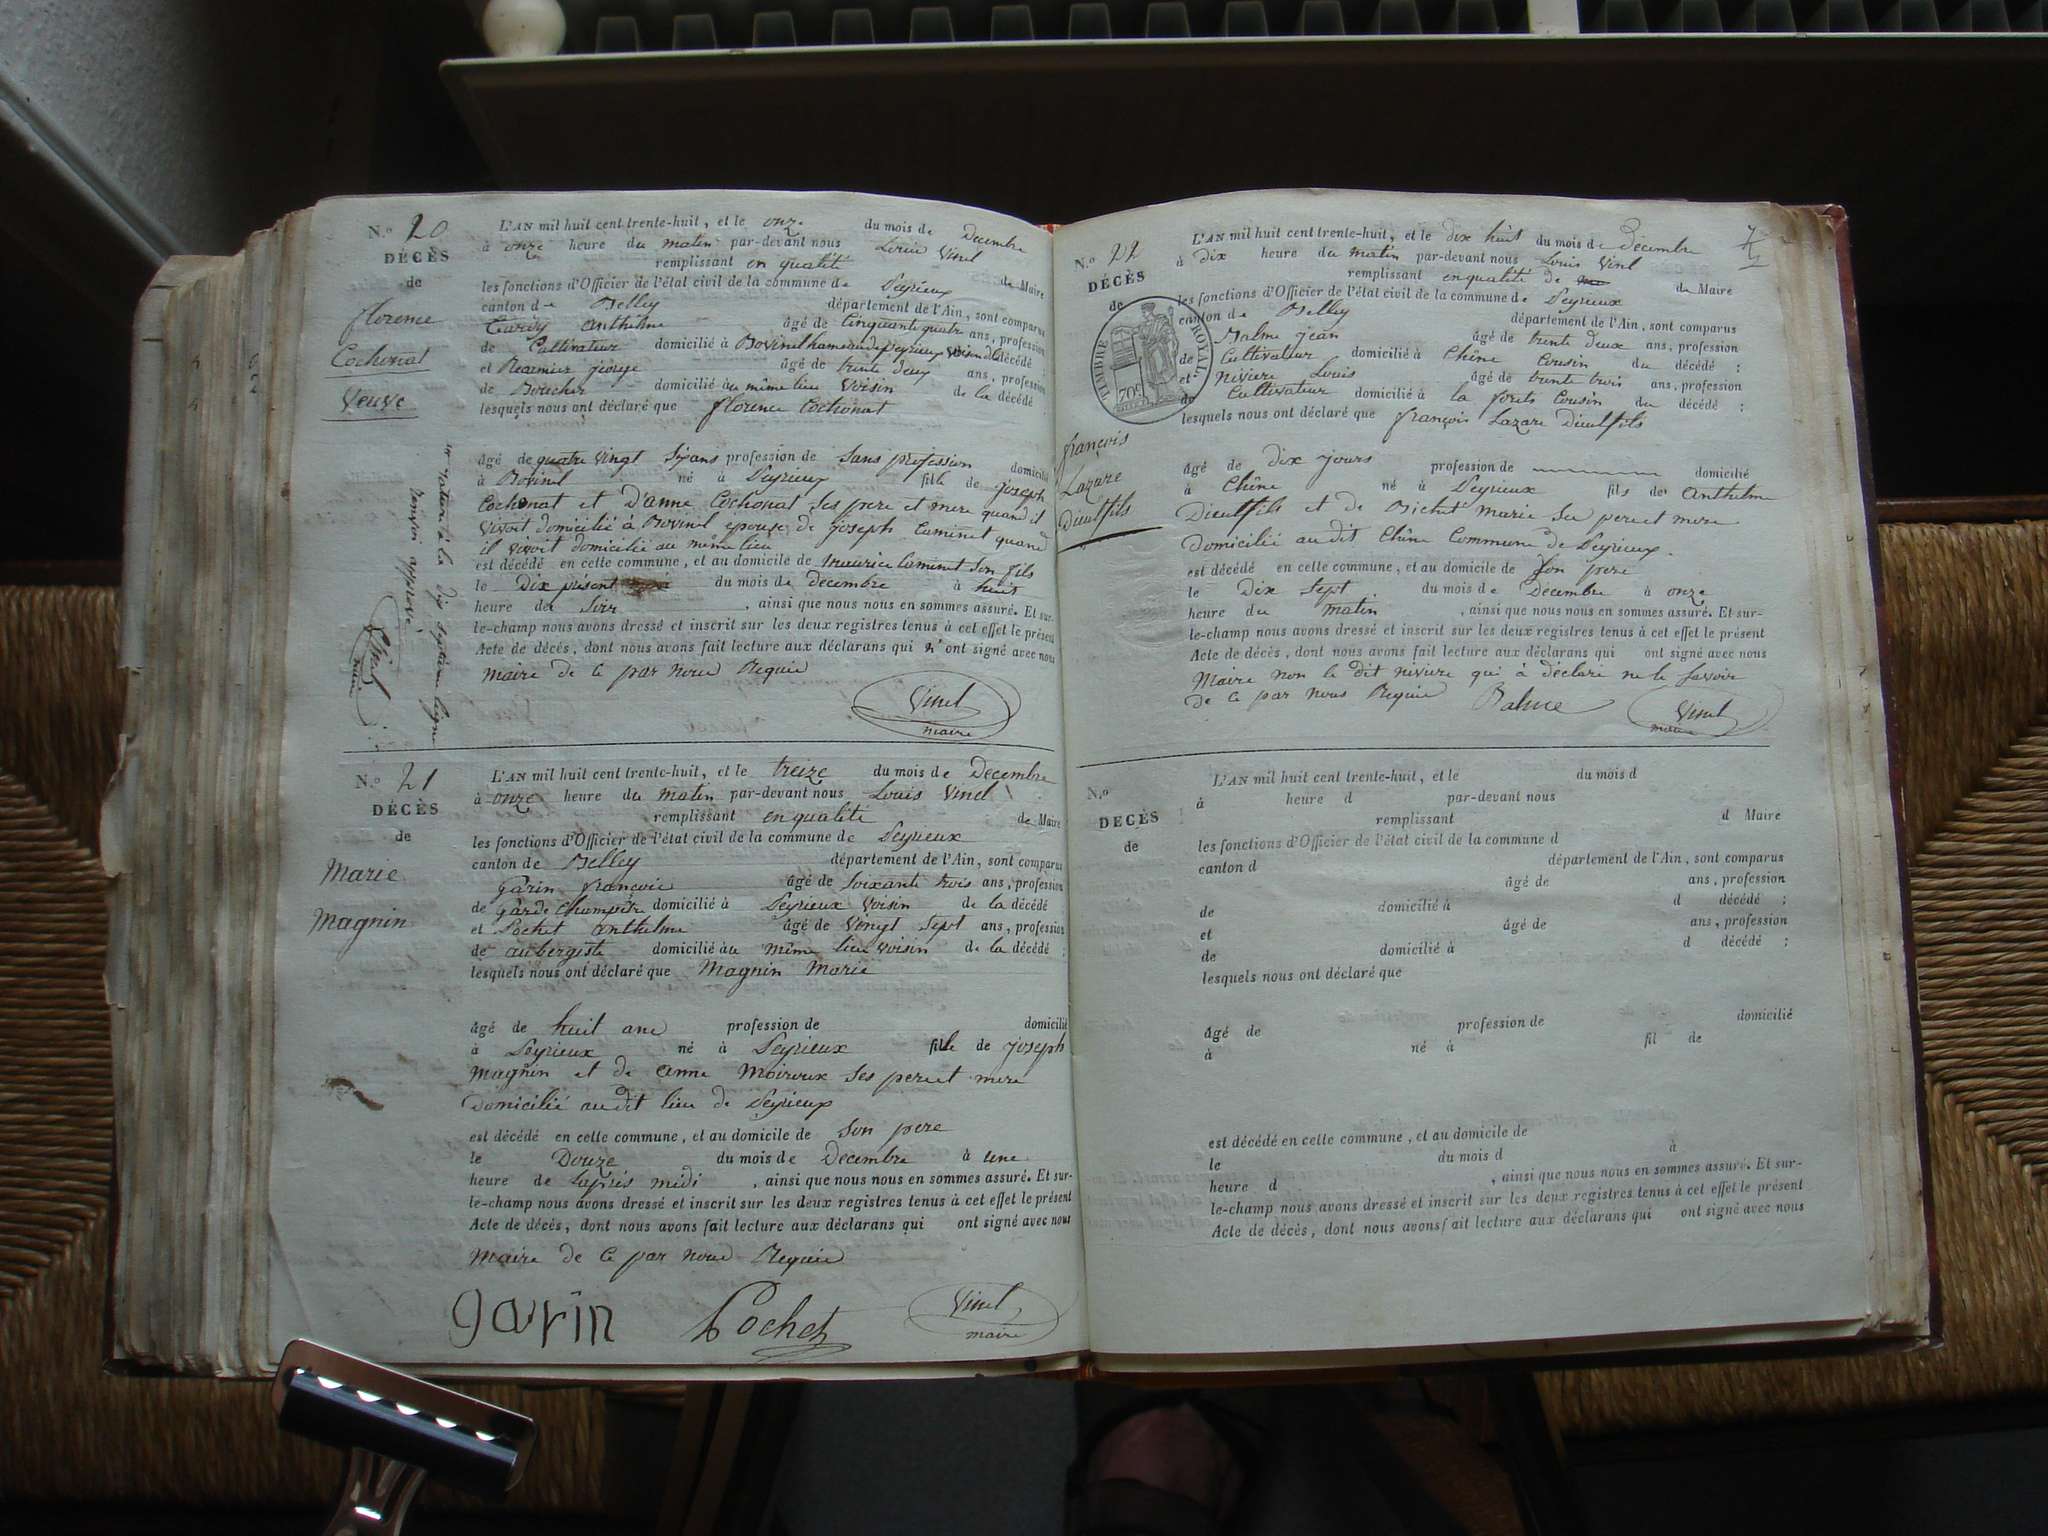 N.o 20
DÉCÈS
de
florence
Cochonat
Veuve
L'AN mil huit cent trente-huit, et le onze du mois de Decembre
à onze heure du matin par-devant nous Louis Vinel
remplissant en qualité de Maire
les fonctions d'Officier de l'état civil de la commune de Peyrieux
canton de Belley département de l'Ain, sont comparus
anthelme âgé de Cinquante quatre ans, profession
de Cultivateur domicilié à Bovinel hameau de peyrieux voisin de la décédé
et Reamier george âgé de trente deux ans, profession
de Boucher domicilié au même lieu Voisin de la décédé
lesquels nous ont déclaré que florence Cochonat
âgé de quatre Vingt Six ans profession de Sans profession domicilié
à Bovinel né à Peyrieux fille de joseph
Cochonat et D'anne Cochonat Ses pere et mere quand il
Vivoit domicilié à Bovinel epouse de joseph Caminet quand
il vivoit domicilié au même lieu
est décédé en cette commune, et au domicile de maurice Caminet Son fils
le Dix présent du mois de decembre à huit
heure du Soir, ainsi que nous nous en sommes assuré. Et sur-
le-champ nous avons dressé et inscrit sur les deux registres tenus à cet effet le présent
Acte de décès, dont nous avons fait lecture aux déclarans qui n' ont signé avec nous
maire de ce par nous Requis
Vinel
maire
renvoi approuvé
Vinel
maire
N.o 21
DÉCÈS
de
Marie
Magnin
L'AN mil huit cent trente-huit, et le treize du mois de Decembre
à onze heure du matin par-devant nous Louis Vinel
remplissant en qualité de Maire
les fonctions d'Officier de l'état civil de la commune de Peyrieux
canton de Belley département de l'Ain, sont comparus
Garin françois âgé de Soixante trois ans, profession
de Garde Champêtre domicilié à Peyrieux Voisin de la décédé
et Pochet anthelme âgé de Vingt Sept ans, profession
de aubergiste domicilié au même lieu Voisin de la décédé ;
lesquels nous ont déclaré que Magnin Marie
âgé de huit ans profession de domicilié
à Peyrieux né à Peyrieux fille de joseph
Magnin et de anne Moiroux Ses pere et mere
Domicilié au dit lieu de Peyrieux
est décédé en cette commune, et au domicile de Son pere
le Douze du mois de Decembre à une
heure de l'après midi, ainsi que nous nous en sommes assuré. Et sur-
le-champ nous avons dressé et inscrit sur les deux registres tenus à cet effet le présent
Acte de décès, dont nous avons fait lecture aux déclarans qui ont signé avec nous
maire de ce par nous Requis
garin Pochet Vinel
maire
N.o 22
DÉCÈS
de
TIMBRE ROYAL
70c
françois
Lazare
Dieultfils
L'AN mil huit cent trente-huit, et le dix huit du mois de décembre
à Dix heure du matin par-devant nous Louis Vinel
remplissant en qualité de de Maire
les fonctions d'Officier de l'état civil de la commune de Peyrieux
canton de Belley département de l'Ain, sont comparus
Balme jean âgé de trente deux ans, profession
de Cultivateur domicilié à Chêne Cousin du décédé ;
et Niviere Louis âgé de trente trois ans, profession
de Cultivateur domicilié à la forêts Cousin du décédé ;
lesquels nous ont déclaré que françois Lazare Dieultfils
âgé de dix jours profession de domicilié
à Chêne né à Peyrieux fils de anthelme
Dieultfils et de Bichet Marie Ses pere et mere
Domicilié au dit Chêne Commune de Peyrieux.
est décédé en cette commune, et au domicile de Son pere
le Dix Sept du mois de Decembre à onze
heure du matin, ainsi que nous nous en sommes assuré. Et sur-
le-champ nous avons dressé et inscrit sur les deux registres tenus à cet effet le présent
Acte de décès, dont nous avons fait lecture aux déclarans qui ont signé avec nous
Maire non le dit niviere qui à déclaré ne le Savoir
de ce par nous Requis Balme Vinel
maire
N.o
DÉCÈS
de
L'AN mil huit cent trente-huit, et le du mois d
à heure d par-devant nous
remplissant d Maire
les fonctions d'Officier de l'état civil de la commune d
canton d département de l'Ain, sont comparus
âgé de ans, profession
de domicilié à d décédé ;
et âgé de ans, profession
de domicilié à d décédé ;
lesquels nous ont déclaré que
âgé de profession de domicilié
à né à fil de
est décédé en cette commune, et au domicile de
le du mois d à
heure d , ainsi que nous nous en sommes assuré. Et sur-
le-champ nous avons dressé et inscrit sur les deux registres tenus à cet effet le présent
Acte de décès, dont nous avons fait lecture aux déclarans qui ont signé avec nous